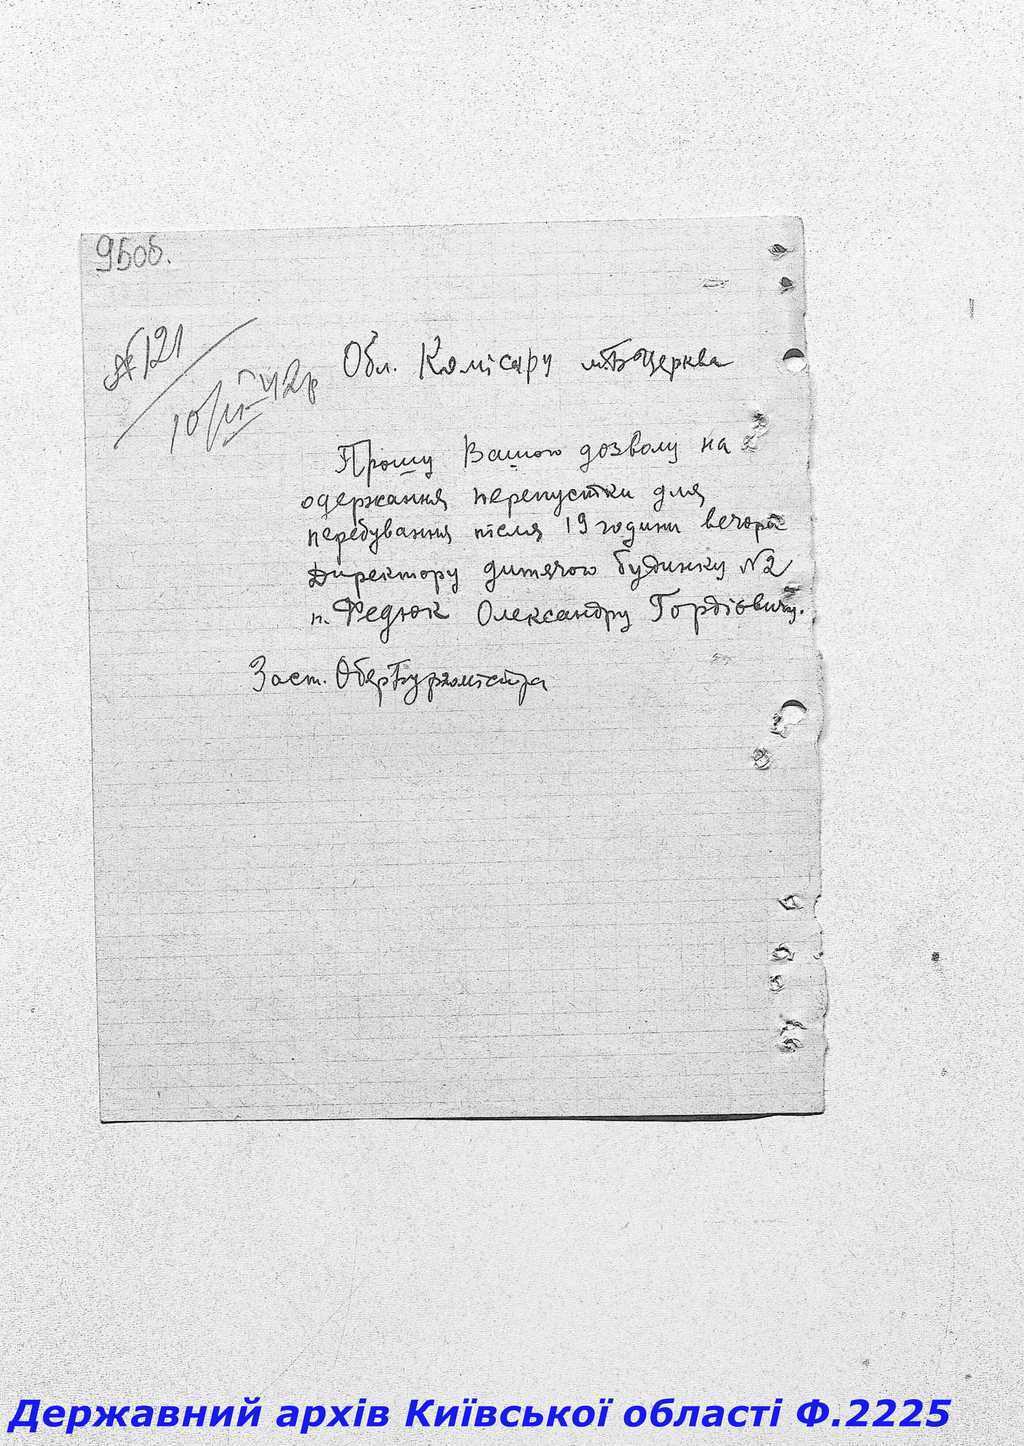 95об.
№121
10/III-42р
Обл. Комісару м.Б Церква
Прошу Вашого дозволу на
одержання перепустки для
перебування після 19 години вечора
Директору дитячого будинку №2
п. Федюк Олександру Гордієвичу.
Заст. ОберБургомістра
Державний архів Київської області Ф.2225